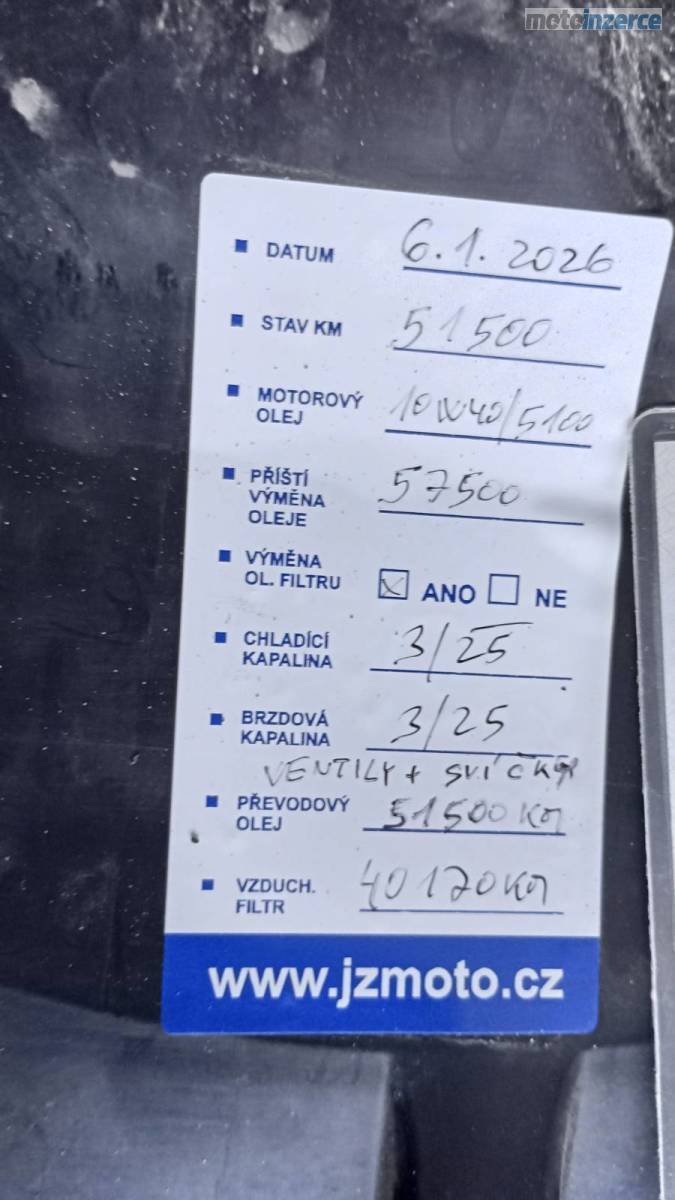 motoinzerce
DATUM 6.1.2026
STAV KM 51500
MOTOROVÝ
OLEJ 10W40/5100
PŘÍŠTÍ
VÝMĚNA
OLEJE 57500
VÝMĚNA
OL. FILTRU ANO NE
CHLADÍCÍ
KAPALINA 3/25
BRZDOVÁ
KAPALINA 3/25
VENTILY + SVÍČKY
PŘEVODOVÝ
OLEJ 51500 KM
VZDUCH.
FILTR 40170 KM
www.jzmoto.cz